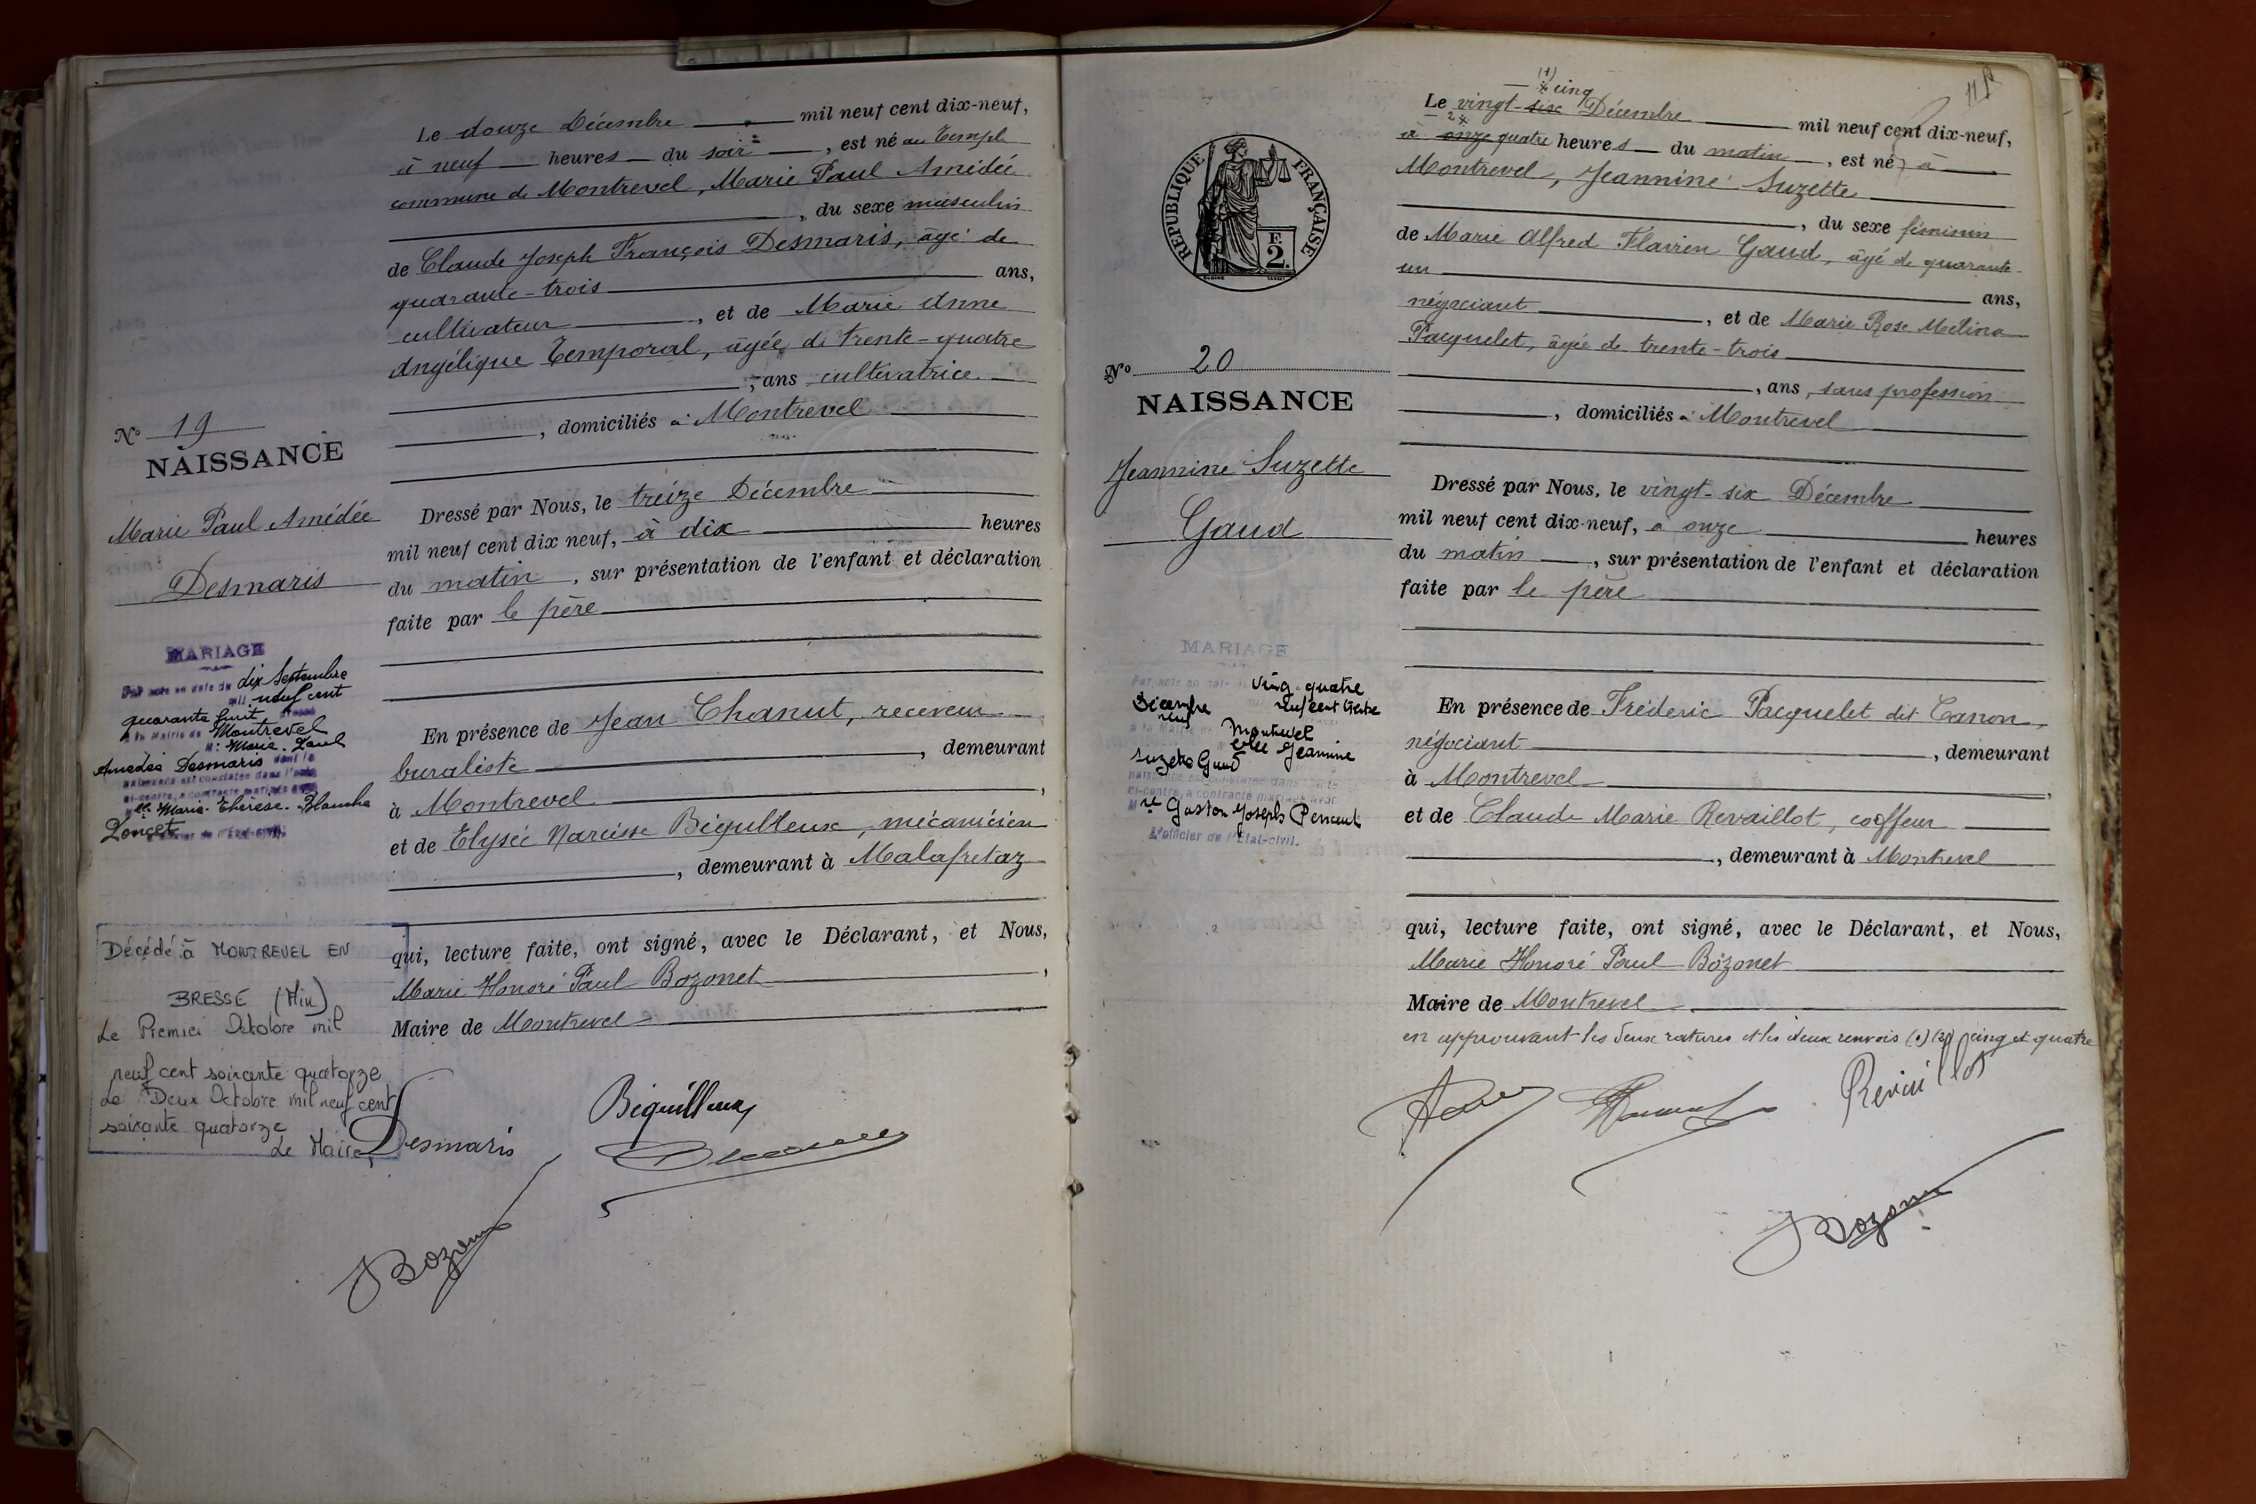 Le douze Décembre mil neuf cent dix-neuf,
à neuf heures du soir, est né au Temple
commune de Montrevel, Marie Paul Amédée
, du sexe masculin
de Claude Joseph François Desmaris, âgé de
quarante-trois ans,
cultivateur, et de Marie Anne
Angélique Temporal, âgée de trente-quatre
, ans cultivatrice
, domiciliés à Montrevel
N° 19
NAISSANCE
Marie Paul Amédée
Desmaris
Dressé par Nous, le treize Décembre
mil neuf cent dix neuf, à dix heures
du matin, sur présentation de l'enfant et déclaration
faite par le père
MARIAGE
Par acte en date du dix Septembre
mil neuf cent
quarante huit
à la Mairie de Montrevel
Mr Marie-Paul
Amédée Desmaris dont la
naissance est constatée dans l'acte
ci-contre, a contracté mariage avec
elle Marie-Thérèse-Blanche
Poncet
L'officier de l'Etat-civil,
En présence de Jean Chanut, receveur
buraliste, demeurant
à Montrevel,
et de Elysée Narcisse Béguilleux, mécanicien
, demeurant à Malafretaz
qui, lecture faite, ont signé, avec le Déclarant, et Nous,
Marie Honoré Paul Bozonet,
Maire de Montrevel
Décédé à MONTREVEL EN
BRESSE (Ain)
Le Premier Octobre mil
neuf cent soixante quatorze
Le Deux Octobre mil neuf cent
soixante quatorze
Le Maire,
Desmaris
Béguilleux
Bozonet
(1)
cinq
Le vingt-six Décembre mil neuf cent dix-neuf,
2
à onze quatre heures du matin, est né à
Montrevel, Jeannine Suzette
, du sexe féminin
de Marie Alfred Flavien Gaud, âgé de quarante-
un ans,
négociant, et de Marie Rose Mélina
Pacquelet, âgée de trente-trois
, ans, sans profession
, domiciliés à Montrevel
REPUBLIQUE FRANÇAISE
F.
2.
N° 20
NAISSANCE
Jeannine Suzette
Gaud
Dressé par Nous, le vingt-six Décembre
mil neuf cent dix-neuf, à onze heures
du matin, sur présentation de l'enfant et déclaration
faite par le père
MARIAGE
Par acte en date ving-quatre
Décembre neuf cent trente
neuf
à la Mairie de Montrevel
elle Jeannine
Suzette Gaud
ci-contre, a contracté mariage avec
Mr Gaston Joseph
L'officier de l'Etat-civil.
En présence de Fréderic Pacquelet dit Canon,
négociant, demeurant
à Montrevel,
et de Claude Marie Revaillot, coiffeur
, demeurant à Montrevel
qui, lecture faite, ont signé, avec le Déclarant, et Nous,
Marie Honoré Paul Bozonet
Maire de Montrevel
en approuvant les deux ratures et les deux renvois (1) (2) cinq et quatre
Revaillot
Bozonet